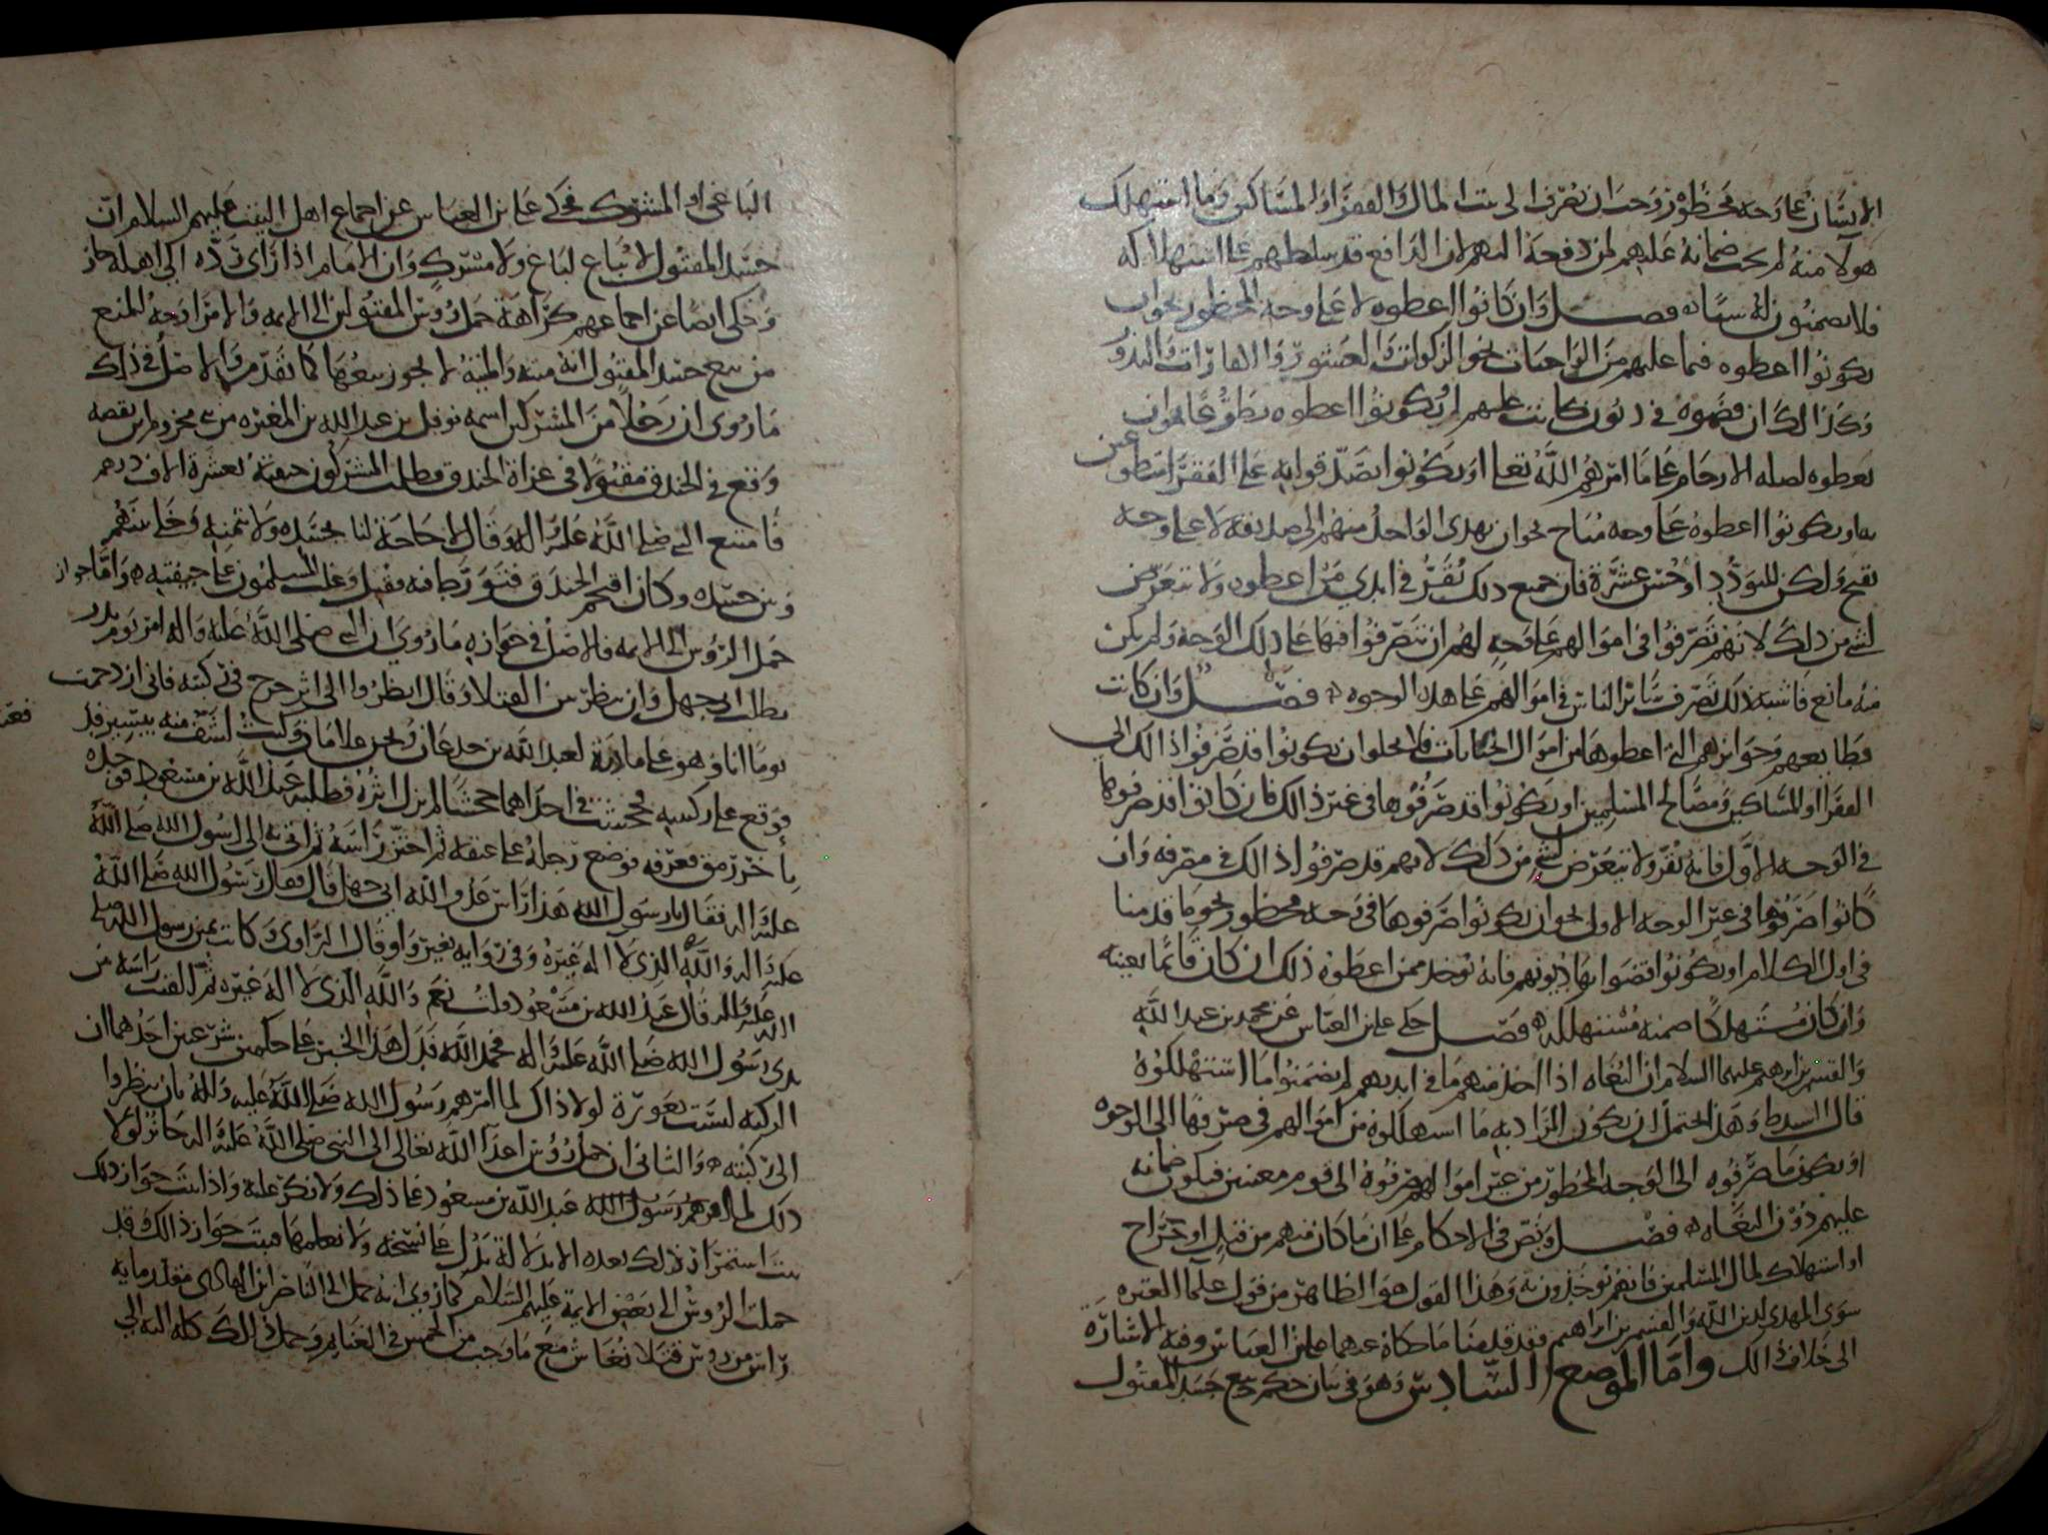 الانسان على وجه محظور وجب ان تصرف الى بيت المال او الفقرا او المساكين وما استهلك
هولآ منه لم يجب ضمانه عليهم لمن دفعه اليهم لان الدافع قد سلطهم على استهلاكه
فلا يضمنون له شيا فصل وان كانوا اعطوه لا على وجه المحظور نحو ان
يكونوا اعطوه فيما عليهم من الواجبات نحو الزكوات والعشور والكفارات والنذور
وكذلك ان قضوه في ديون كانت عليهم او يكونوا اعطوه تطوعا نحو ان
يعطوه لصله الارحام على ما امرهم الله تعالى او يكونوا تصدقوا به على الفقرا متطوعين
به او يكونوا اعطوه على وجه مباح نحو ان يهدى الواحد منهم الى صديقه لا على وجه
يقبح ولكن للتودد او حسن عشرة فان جميع ذلك يقر في ايدي من اعطوه ولا يتعرض
لشي من ذلك لانهم تصرفوا في اموالهم على وجه لهم ان يتصرفوا فيها على ذلك الوجه ولم يكن
منه مانع فاشبه ذلك تصرف سائر الناس في اموالهم على هذه الوجوه فصل وان كانت
قطايعهم وجوايزهم التي اعطوها من اموال الجنايات فلا يخلوا ان يكونوا قد صرفوا ذلك الى
الفقرا والمساكين ومصالح المسلمين او يكونوا قد صرفوها في غير ذلك فان كانوا قد صرفوها
في الوجه الاول فانه يقر ولا يتعرض لشي من ذلك لانهم قد صرفوا ذلك في مصرفه وان
كانوا صرفوها في غير الوجه الاول نحو ان يكونوا صرفوها في وجه محظور نحو ما قدمنا
في اول الكلام او يكونوا قضوا بها ديونهم فانه يوخذ ممن اعطوه ذلك ان كان قائما بعينه
وان كان مستهلكا ضمنه مستهلكه فصل حكى علي بن العباس عن محمد بن عبد الله
والقسم بن ابرهيم عليهما السلام ان البغاه اذا اخذ منهم ما في ايديهم لم يضمنوا ما استهلكوه
قال السيد ط وهذا يحتمل ان يكون المراد به ما استهلكوه من اموالهم في صرفها الى الوجوه
او يكون ما صرفوه الى الوجه المحظور من غير اموالهم صرفوه الى قوم معينين فيكون ضمانه
عليهم دون البغاه فصل ونص في الاحكام على ان ما كان منهم من قتل او جراح
او استهلاك لمال المسلمين فانهم يوخذون به وهذا القول هو الظاهر من قول علما العتره
سوى المهدي لدين الله والقسم بن ابراهيم فقد قدمنا ما حكاه عنهما علي بن العباس وفيه الاشارة
الى خلاف ذلك واما الموضع السادس وهو في بيان حكم بيع جسد المقتول
الباغي او المشرك فحكى علي بن العباس عن اجماع اهل البيت عليهم السلام ان
جسد المقتول لا يباع لباغ ولا مشرك وان الامام اذا راى رده الى اهله جاز
وحكى ايضا عن اجماعهم كراهة حمل روس المقتولين الى الايمه والامرا وجه المنع
من بيع جسد المقتول انه ميته والميتة لا يجوز بيعها كما تقدم والاصل في ذلك
ما روي ان رجلا من المشركين اسمه نوفل بن عبد الله بن المغيره من بني مخزوم
وقع في الخندق مقتولا في غزاة الخندق فطلب المشركون جيفته بعشرة الاف درهم
فامتنع النبي صلى الله عليه واله وقال لا حاجة لنا بجسده ولا ثمنه وخلى بينهم
وبين جسده وكان اقتحم الخندق فتورط فيه فقتل وغلب المسلمون على جيفته واما جواز
حمل الروس الى الايمه فالاصل في جوازه ما روي ان النبي صلى الله عليه واله امر يوم بدر
بطلب ابي جهل وان ينظر بين القتلا وقال انظروا الى اثر جرح في ركبته فاني ازدحمت
يوما انا وهو على مادبة لعبد الله بن جدعان ونحن غلامان وكنت اشف منه بيسير
فوقع على ركبتيه فجحشت في احداهما جحشا لم يزل اثره فطلبه عبد الله بن مسعود فوجده
باخر رمق فعرفه فوضع رجله على عنقه ثم احتز راسه ثم اتى به الى رسول الله صلى الله
عليه واله فقال يا رسول الله هذا راس عدو الله ابي جهل قال فقال رسول الله صلى الله
عليه واله والله الذي لا اله غيره وفي روايه بغير واو قال الراوي وكانت يمين رسول الله صلى
الله عليه واله قال عبد الله بن مسعود قلت نعم والله الذي لا اله غيره ثم القيت راسه بين
يدي رسول الله صلى الله عليه واله فحمد الله فدل هذا الخبر على حكمين شرعيين احدهما ان
الركبه ليست بعورة لولا ذلك لما امرهم رسول الله صلى الله عليه واله بان ينظروا
الى ركبته والثاني ان حمل روس اعدآ الله تعالى الى النبي صلى الله عليه واله جائز لولا
ذلك لما اقرهم رسول الله عبد الله بن مسعود على ذلك ولا نكر عليه واذا ثبت جواز ذلك
ثبت استمرار ذلك بعده الا بدلالة تدل على نسخه ولا نعلمها فثبت جواز ذلك وقد
حملت الروس الى بعض الايمة عليهم السلام كما روي انه حمل الى الناصر ابن الهادي مقدار مايه
راس من روس قتلا نغاش مع ما وجب من الخمس في الغنايم وحمل ذلك كله اليه الى